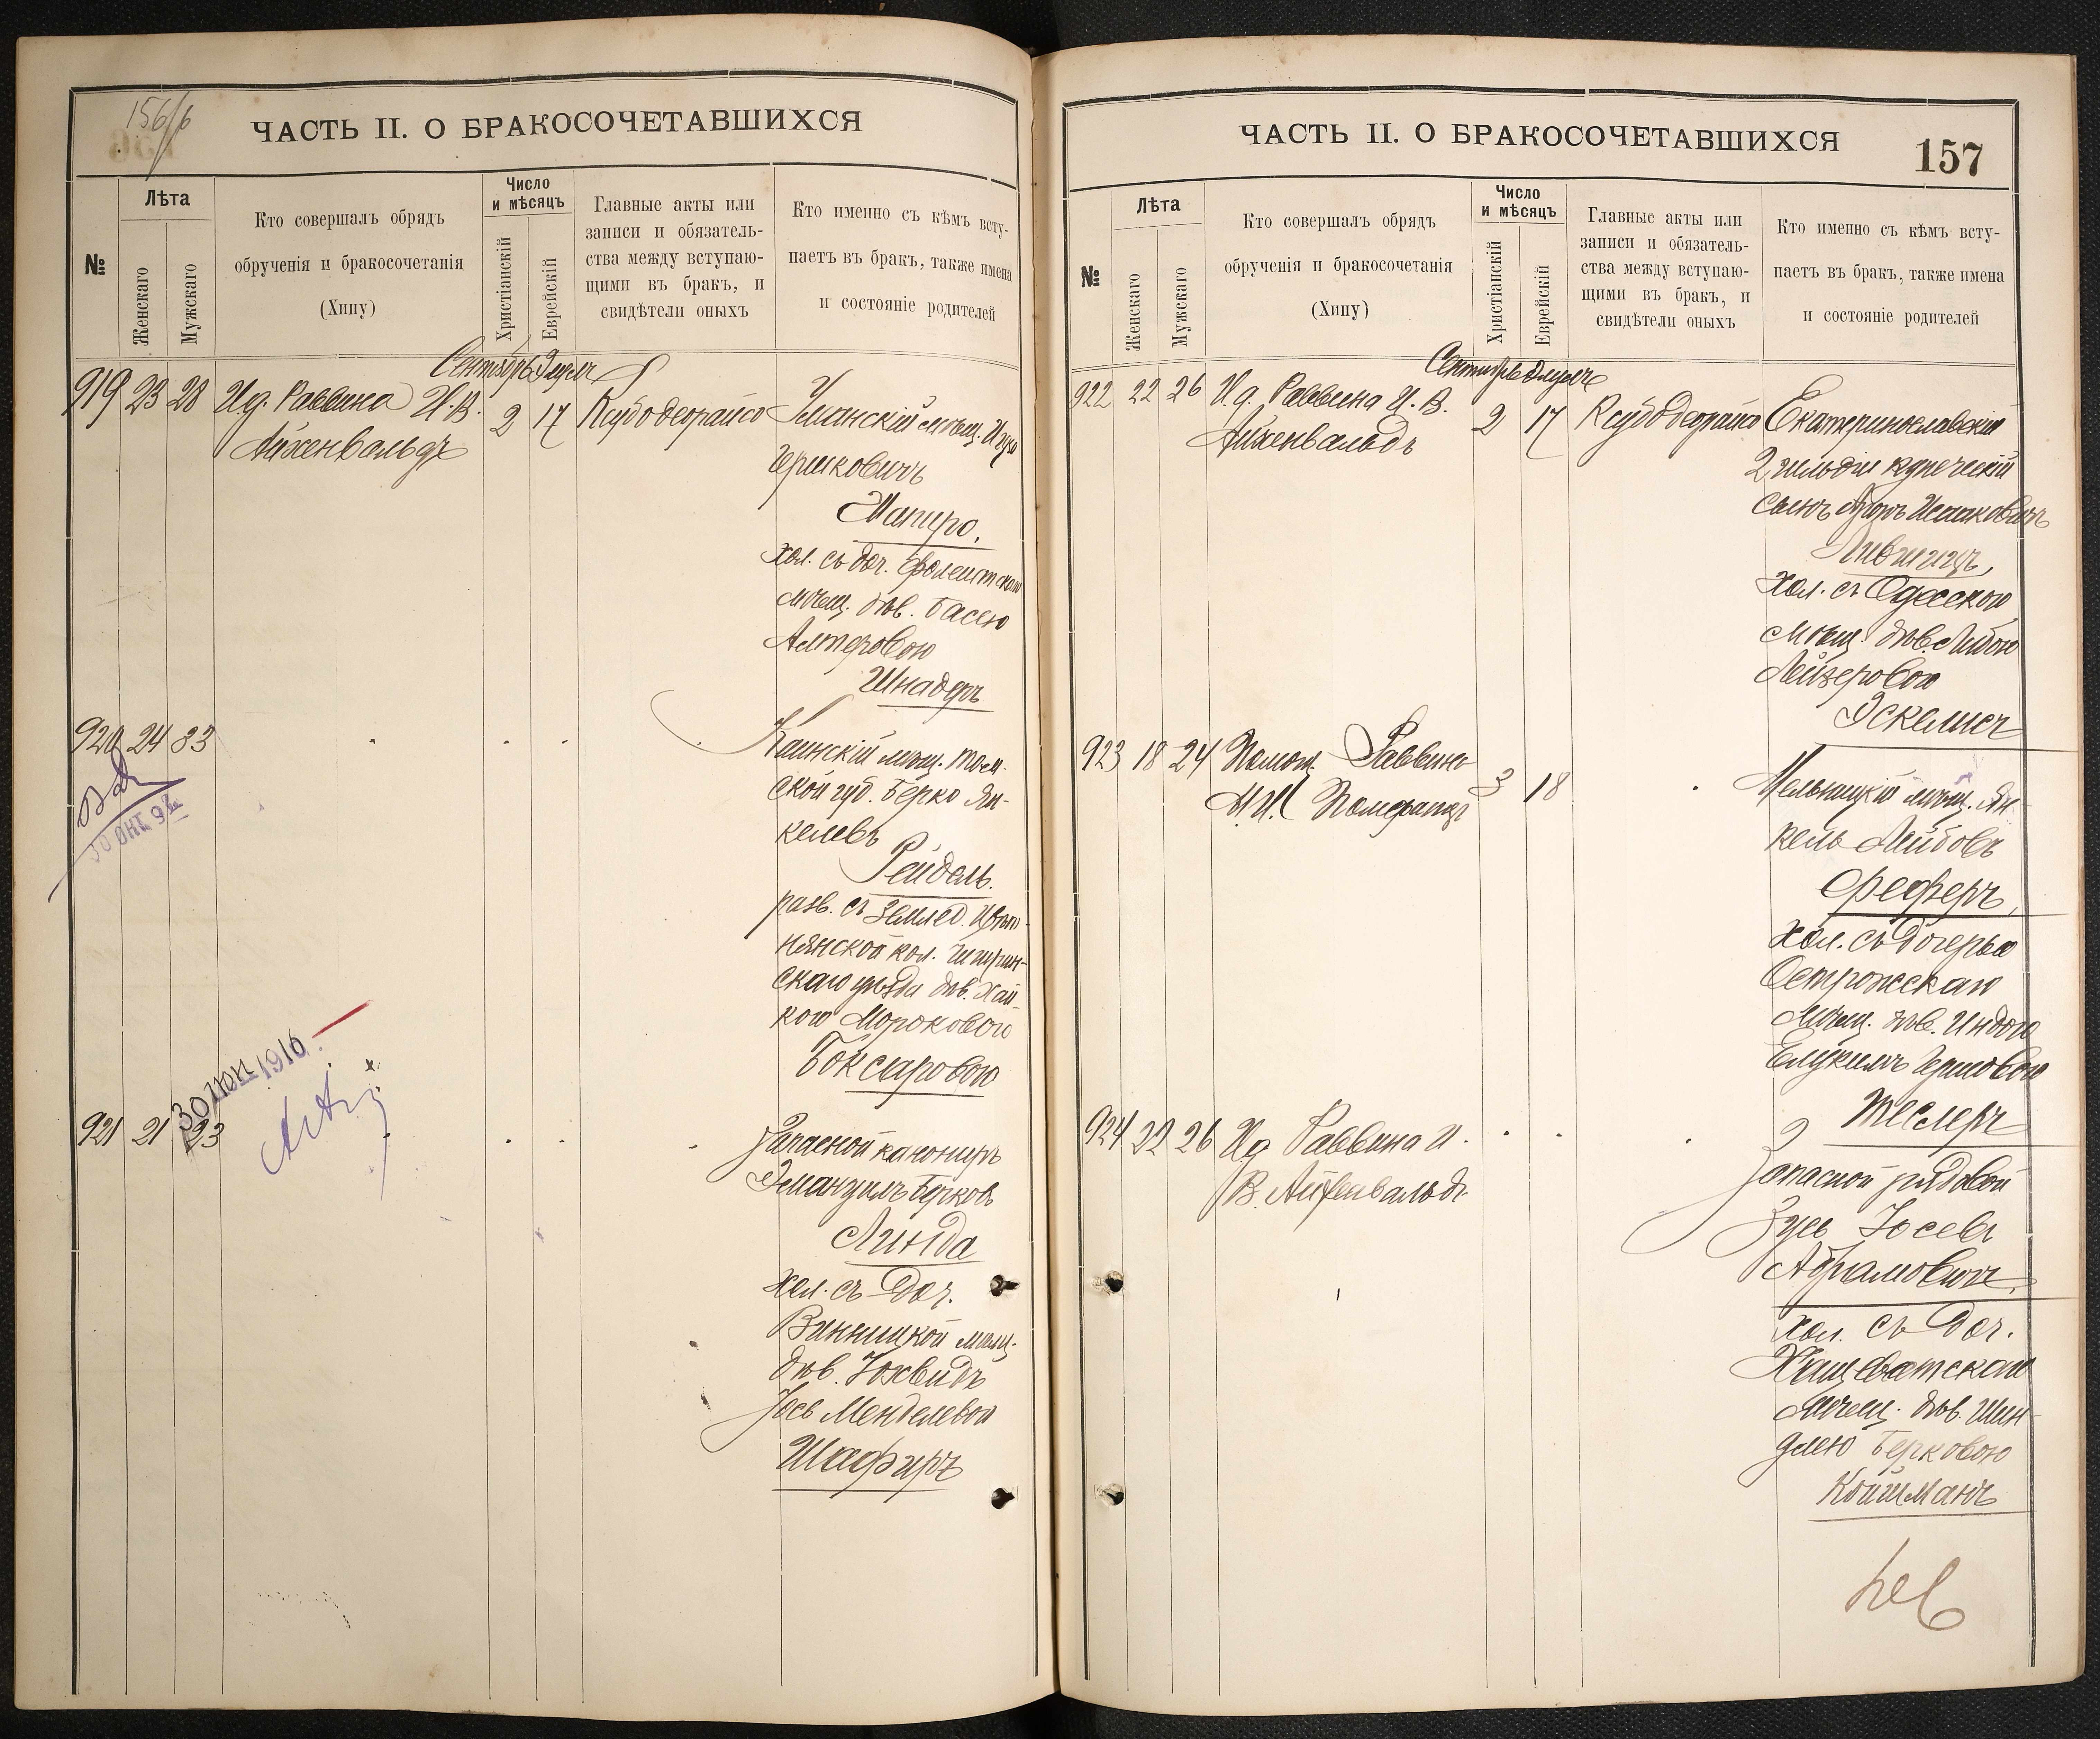 156/б
ЧАСТЬ II. О БРАКОСОЧЕТАВШИХСЯ
№
Лѣта
Женскаго
Мужскаго
Кто совершалъ обрядъ
обрученія и бракосочетанія
(Хипу)
Число
и мѣсяцъ
Христіанскій
Еврейскій
Главные акты или
записи и обязатель-
ства между вступаю-
щими въ бракъ, и
свидѣтели оныхъ
Кто именно съ кѣмъ всту-
паетъ въ бракъ, также имена
и состояніе родителей
Сентябрь
919 23 28 И.д. Раввина И.В.
Айхенвальдъ
2 17
Уманскій мѣщ. Ицко
Гершковичъ
Шапиро,
хол. съ доч.
мѣщ. дѣв. Басею
Алтеровою
Шнадеръ
920 24 33
Каинскій мѣщ. Том-
ской губ. Берко Ян-
келевъ
Рейдель.
разв. съ землед.
нянской кол.
скаго уѣзда дѣв. Хай-
кою Мороковою
Боксаровою
30 ИЮЛ 1910
921 21 23
Запасной канониръ
Эмануилъ Берковъ
Линда
хол. съ доч.
Винницкой мѣщ.
дѣв. Юхвидъ
Зось Менделевою
Шафиръ
ЧАСТЬ II. О БРАКОСОЧЕТАВШИХСЯ
157
№
Лѣта
Женскаго
Мужскаго
Кто совершалъ обрядъ
обрученія и бракосочетанія
(Хипу)
Число
и мѣсяцъ
Христіанскій
Еврейскій
Главные акты или
записи и обязатель-
ства между вступаю-
щими въ бракъ, и
свидѣтели оныхъ
Кто именно съ кѣмъ всту-
паетъ въ бракъ, также имена
и состояніе родителей
Сентябрь
922 22 26 И.д. Раввина И.В.
Айхенвальдъ
2 17
Екатеринославскій
2 гильдіи купеческій
сынъ Аронъ Исааковичъ
Лившицъ,
хол. съ Одесскою
мѣщ. дѣв.
Лейзеровою
Эскелисъ
923 18 24 Помощ. Раввина
М.И. Померанцъ
3 18
Мельницкій мѣщ. Ян-
кель Лейбовъ
Феферъ,
хол. съ дочерью
Острожскаго
мѣщ. дѣв. Индою
Гершовою
Теслеръ
924 22 26 И.д. Раввина И.
В. Айхенвальдъ
Запасной рядовой
Зусь Іосевъ
Абрамовичъ,
хол. съ доч.
Хащеватскаго
мѣщ. дѣв. Шин-
длею Берковою
Койшманъ